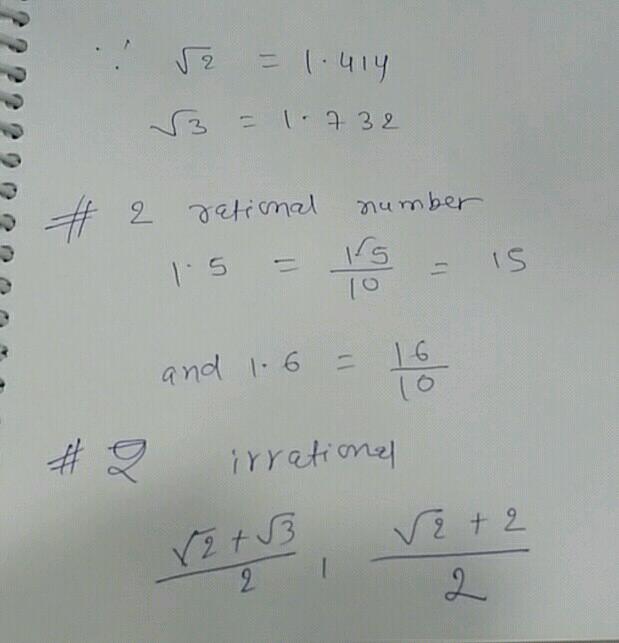 ∵ √2 = 1.414
√3 = 1.732
# 2 rational number
1.5 = 15/10 = 15
and 1.6 = 16/10
# 2 irrational
(√2 + √3)/2 , (√2 + 2)/2